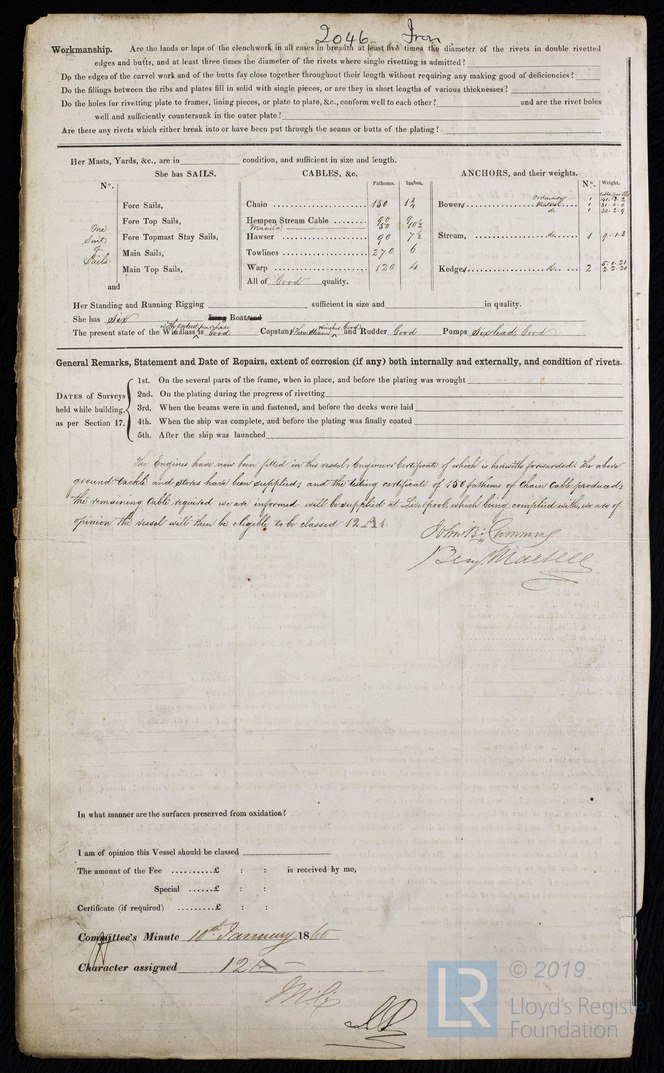 2046 Iron
Workmanship. Are the lands or laps of the clenchwork in all cases in breadth at least five times the diameter of the rivets in double rivetted
edges and butts, and at least three times the diameter of the rivets where single rivetting is admitted?
Do the edges of the carvel work and of the butts fay close together throughout their length without requiring any making good of deficiencies?
Do the fillings between the ribs and plates fill in solid with single pieces, or are they in short lengths of various thicknesses?
Do the holes for rivetting plate to frames, lining pieces, or plate to plate, &c., conform well to each other? and are the rivet holes
well and sufficiently countersunk in the outer plate?
Are there any rivets which either break into or have been put through the seams or butts of the plating?
Her Masts, Yards, &c., are in condition, and sufficient in size and length.
She has SAILS. CABLES, &c. ANCHORS, and their weights.
N°. Fathoms. Inches. N°. Weight.
Fore Sails, Chain 150 1 2/4 Bowers Ordinary 1
Fore Top Sails, Hempen Stream Cable 90 9 do 1
One Suit of Sails Manila 150 10½
Fore Topmast Stay Sails, Hawser 90 7½ Stream, do. 1 9.1.3
Main Sails, Towlines 270 6
Main Top Sails, Warp 120 4 Kedges do. 2 5.0.21
2.2.20
and All of Good quality.
Her Standing and Running Rigging sufficient in size and in quality.
She has Six Long Boat and
The present state of the Windlass is with patent purchase Good Capstan & Steam Winches Good and Rudder Good Pumps Six lead, Good
General Remarks, Statement and Date of Repairs, extent of corrosion (if any) both internally and externally, and condition of rivets.
DATES of Surveys held while building, as per Section 17.
1st. On the several parts of the frame, when in place, and before the plating was wrought
2nd. On the plating during the progress of rivetting
3rd. When the beams were in and fastened, and before the decks were laid
4th. When the ship was complete, and before the plating was finally coated
5th. After the ship was launched
The Engines have now been fitted in this vessel, Engineers Certificate of which is herewith forwarded. The above
ground tackle and stores have been supplied, and the testing certificate of 150 fathoms of Chain Cable produced,
the remaining Cable required we are informed will be supplied at Liverpool, which being complied with, we are of
opinion the vessel will then be eligible to be classed 12 A1.
John B. Cumming
Benj Martell
In what manner are the surfaces preserved from oxidation?
I am of opinion this Vessel should be classed
The amount of the Fee ..........£ : : is received by me,
Special ......£ : :
Certificate (if required) .........£ : :
Committee's Minute 10th January 1860
Character assigned 12
LR © 2019
Lloyd's Register
Foundation